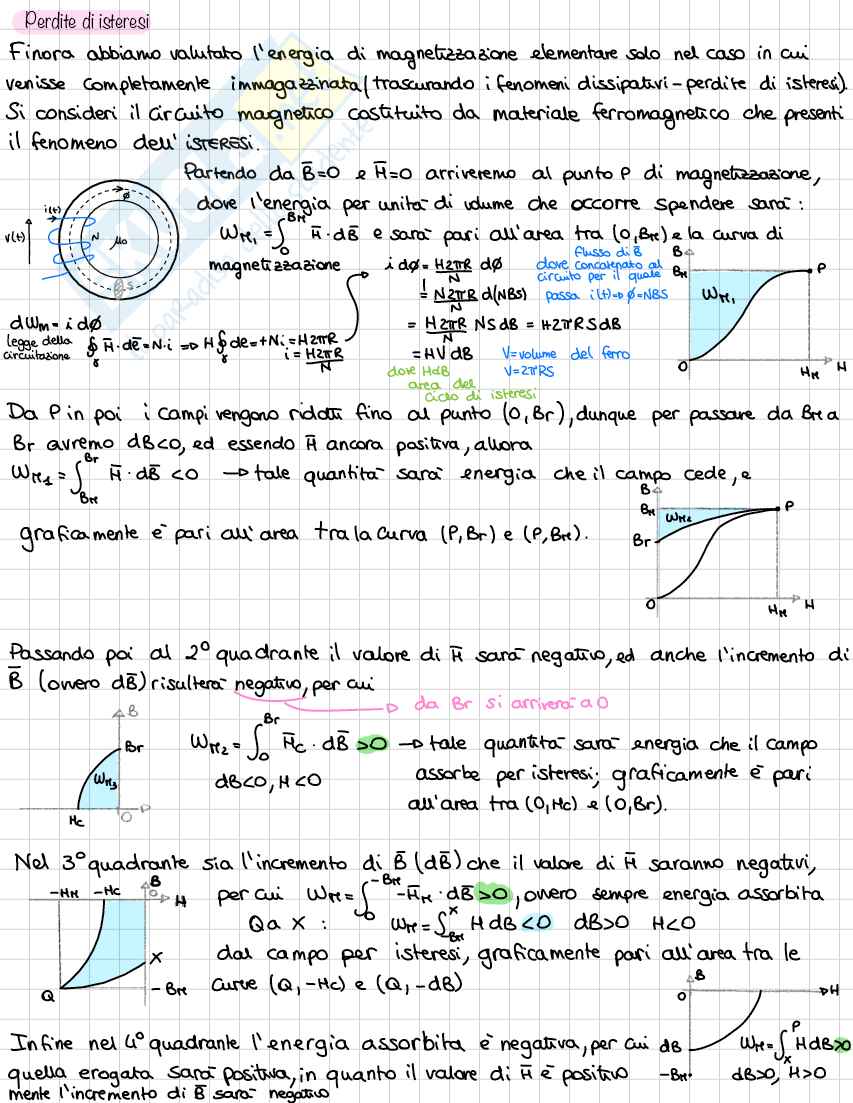 Perdite di isteresi
Finora abbiamo valutato l'energia di magnetizzazione elementare solo nel caso in cui
venisse completamente immagazzinata (trascurando i fenomeni dissipativi - perdite di isteresi).
Si consideri il circuito magnetico costituito da materiale ferromagnetico che presenti
il fenomeno dell' ISTERESI.
Partendo da B̄=0 e H̄=0 arriveremo al punto P di magnetizzazione,
dove l'energia per unità di volume che occorre spendere sarà:
W_M₁ = ∫₀^{B_M} H̄ · dB̄ e sarà pari all'area tra (0,B_M) e la curva di
magnetizzazione
i(t)
v(t)
N
μ₀
ϕ
S
dW_m = i dϕ
legge della
circuitazione
∮_γ H̄ · dē = N·i => H ∮_γ de = +Ni = H2πR
i = H2πR/N
i dϕ = H2πR/N dϕ
= N2πR/N d(NBS)
= H2πR/N NS dB = H2πRS dB
= HV dB
flusso di B̄
dove concatenato al
circuito per il quale
passa i(t) => ϕ = NBS
V = volume del ferro
V = 2πRS
dove HdB
area del
ciclo di isteresi
B
B_M
P
W_M₁
0
H_M
H
Da P in poi i campi vengono ridotti fino al punto (0,Br), dunque per passare da B_M a
Br avremo dB<0, ed essendo H̄ ancora positiva, allora
W_M₁ = ∫_{B_M}^{Br} H̄ · dB̄ <0 → tale quantità sarà energia che il campo cede, e
graficamente è pari all'area tra la curva (P,Br) e (P,B_M).
B
B_M
W_M₂
P
Br
0
H_M
H
Passando poi al 2° quadrante il valore di H̄ sarà negativo, ed anche l'incremento di
B̄ (ovvero dB̄) risulterà negativo, per cui
da Br si arriverà a 0
B
Br
W_M₃
Hc
0
W_M₂ = ∫₀^{Br} H̄c · dB̄ >0 → tale quantità sarà energia che il campo
dB<0, H<0
assorbe per isteresi; graficamente è pari
all'area tra (0,Hc) e (0,Br).
Nel 3° quadrante sia l'incremento di B̄ (dB̄) che il valore di H̄ saranno negativi,
-H_M
-Hc
B
0
H
X
Q
-B_M
per cui W_M = ∫₀^{-B_M} -H̄_M · dB̄ >0, ovvero sempre energia assorbita
Q a X : W_M = ∫_{-B_M}^{X} H dB <0 dB>0 H<0
dal campo per isteresi, graficamente pari all'area tra le
curve (Q,-Hc) e (Q,-dB)
B
0
H
dB
-B_M
Infine nel 4° quadrante l'energia assorbita è negativa, per cui
quella erogata sarà positiva, in quanto il valore di H̄ è positivo
mente l'incremento di B̄ sarà negativo
W_M = ∫_X^P H dB >0
dB>0, H>0